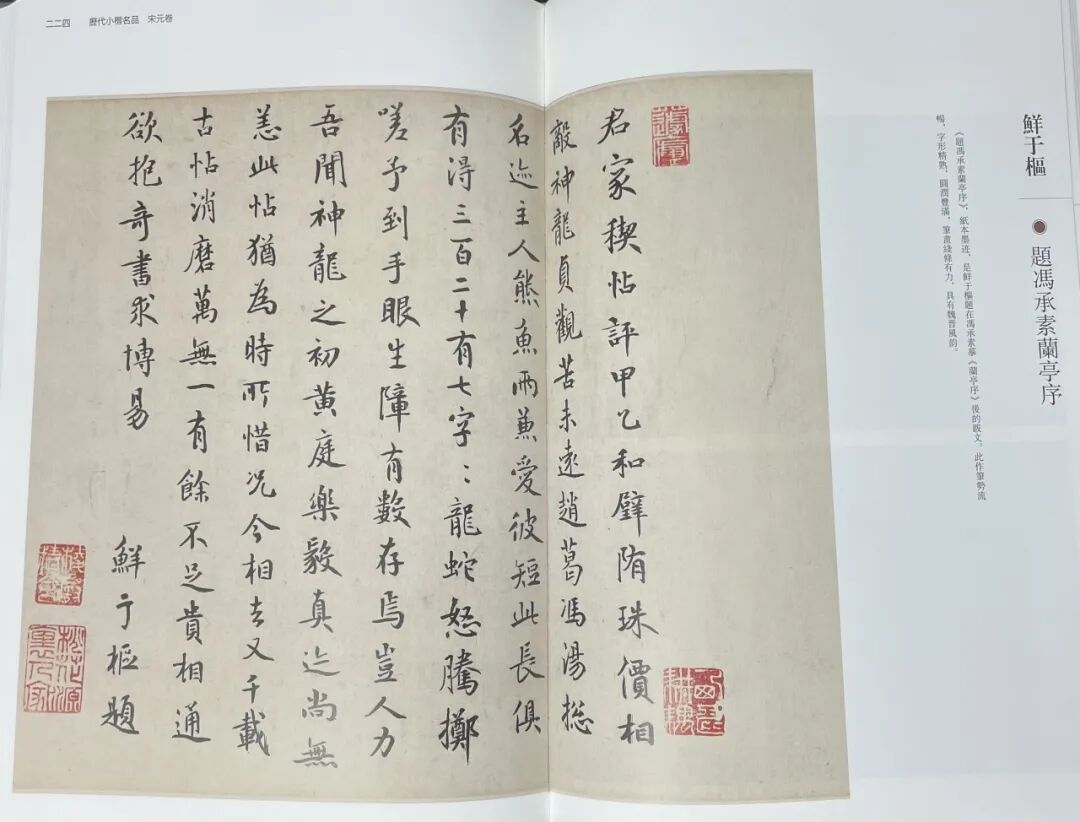 二二四 歷代小楷名品 宋元卷
鮮于樞 ● 題馮承素蘭亭序
《題馮承素蘭亭序》，紙本墨迹，是鮮于樞題在馮承素摹《蘭亭序》後的跋文。此作筆勢流
暢，字形精熟，圓潤豐滿，筆畫綫條有力，具有魏晋風韵。
君家稧帖評甲乙和璧隋珠價相
敵神龍貞觀苦未遠趙葛馮湯捴
名迹主人熊魚兩兼愛彼短此長俱
有淂三百二十有七字〻龍蛇怒騰擲
嗟予到手眼生障有數存焉豈人力
吾聞神龍之初黄庭樂毅真迹尚無
恙此帖猶為時所惜况今相去又千載
古帖消磨萬無一有餘不足貴相通
欲抱奇書求博易
鮮于樞題
桃花源
裏人家